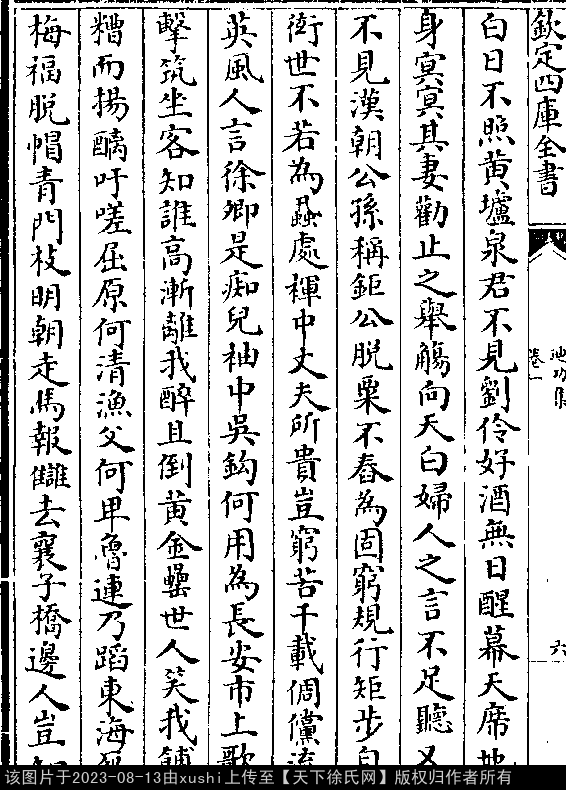 欽定四庫全書
迪功集
卷一
六
白日不照黄壚泉君不見劉伶好酒無日醒幕天席地
身冥冥其妻勸止之舉觴向天白婦人之言不足聽又
不見漢朝公孫稱鉅公脱粟不舂為固窮規行矩步自
衒世不若為蝨處褌中丈夫所貴豈窮苦千載倜儻流
英風人言徐卿是痴兒袖中吳鈎何用為長安市上歌
擊筑坐客知誰高漸離我醉且倒黄金罍世人笑我餔
糟而揚醨吁嗟屈原何清漁父何卑魯連乃蹈東海死
梅福脱帽青門枝明朝走馬報讎去襄子橋邊人豈知
该图片于2023-08-13由xushi上传至【天下徐氏网】版权归作者所有